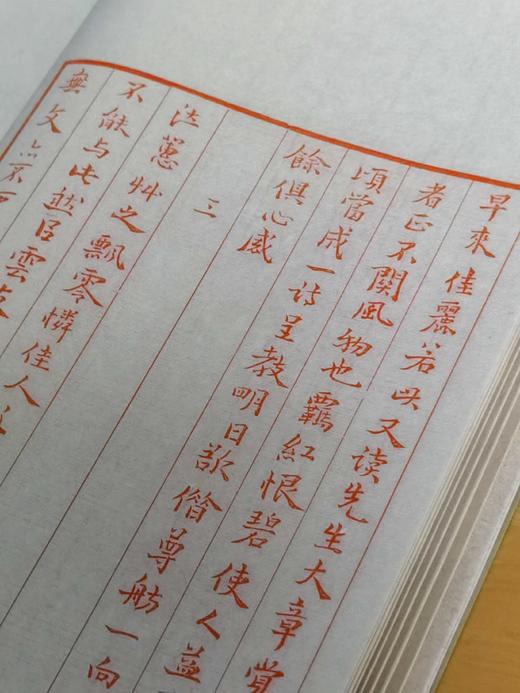 早來佳麗若此又读先生大章
者正不關風物也羈紅恨碧使人益
頃當成一詩呈教明日欲借尊舫一向
餘俱心感
三
泣蕙艸之飄零憐佳人
不能与此然㠯雲
無文亦不可